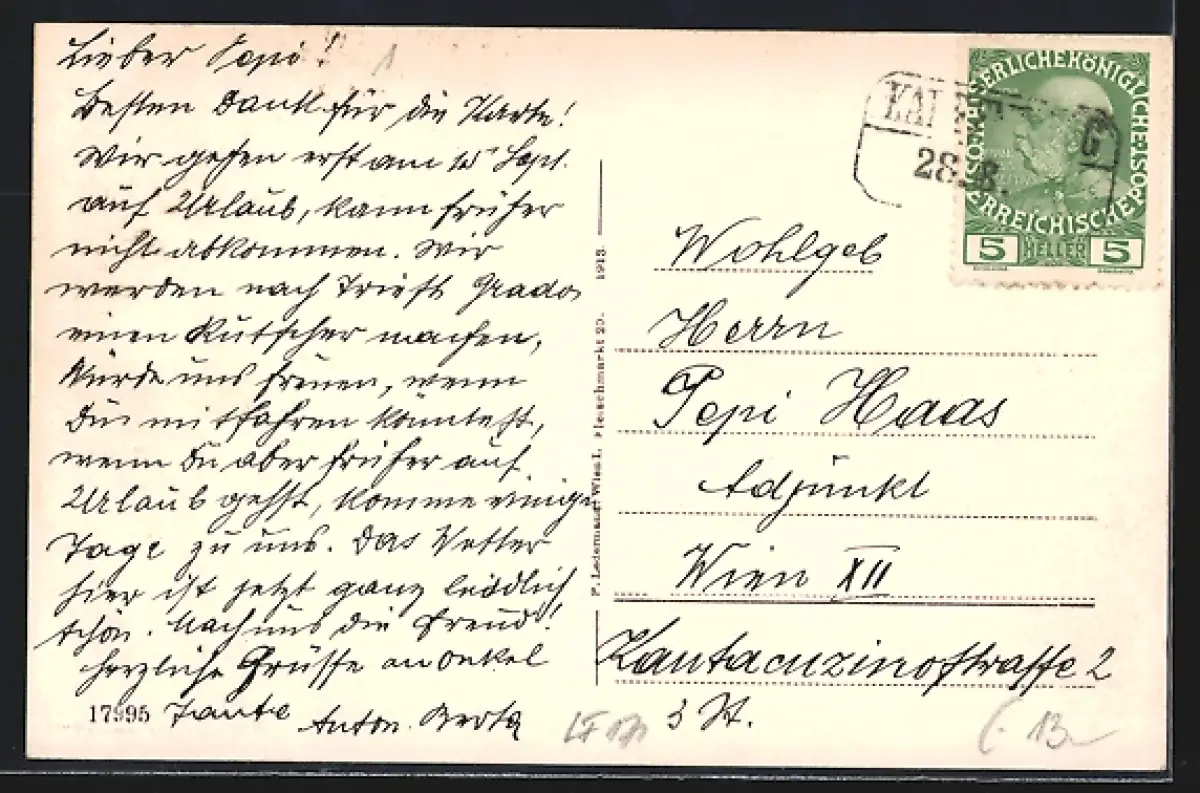 Lieber Pepi!
Besten Dank für die Karte!
Wir gehen erst am 15 Sept.
auf Urlaub, kann früher
nicht abkommen. Wir
werden nach Triest Grado
einen Rutscher machen,
Würde uns freuen, wenn
Du mitfahren könntest,
wenn Du aber früher auf
Urlaub gehst, komme einige
Tage zu uns. Das Wetter
hier ist jetzt ganz leidlich
schön. Mach uns die Freud!
herzliche Grüsse an Onkel
Tante Anton. Berta
17995
P. Ledermann, Wien I. Fleischmarkt 20. 1913.
KAISERLICHE KÖNIGLICHE ÖSTERREICHISCHE POST
5 HELLER 5
28.
Wohlgeb
Herrn
Pepi Haas
Adjunkt
Wien XII
Kantacuzinostrasse 2
3 St.
13